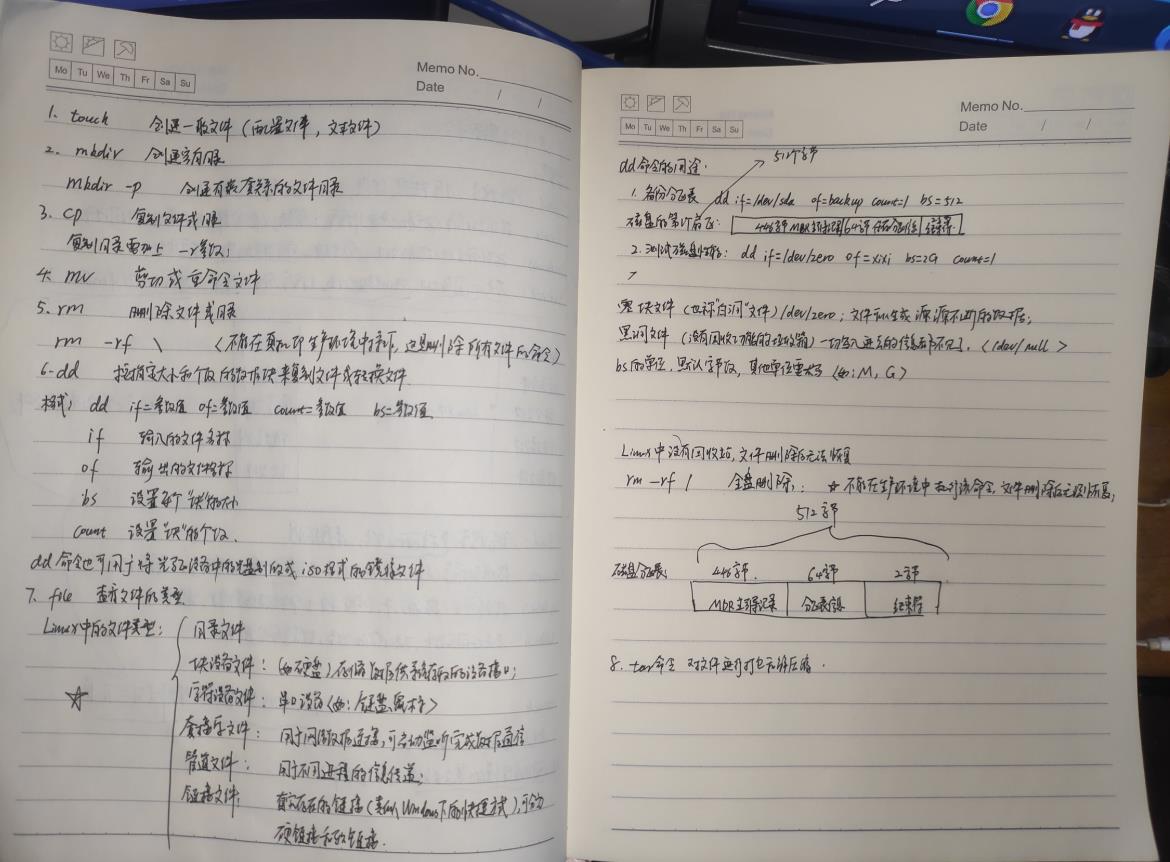 Mo Tu We Th Fr Sa Su
Memo No.
Date / /
1. touch 创建一般文件（配置文件，文本文件）
2. mkdir 创建空白目录
mkdir -p 创建有嵌套关系的文件目录
3. cp 复制文件或目录
复制目录需加上 -r参数；
4. mv 剪切或重命名文件
5. rm 删除文件或目录
rm -rf \ （不能在真机即生产环境中操作，这是删除所有文件的命令）
6. dd 按指定大小和个数的数据块来复制文件或转换文件
格式： dd if=参数值 of=参数值 count=参数值 bs=参数值
if 输入的文件名称
of 输出的文件名称
bs 设置每个"块"的大小
count 设置"块"的个数
dd命令也可用于将光驱设备中的光盘制成.iso格式的镜像文件
7. file 查看文件的类型
Linux中的文件类型：
目录文件
块设备文件：（如硬盘）存储数据供系统存取的设备接口；
字符设备文件： 串口设备（如：键盘、鼠标）
套接字文件： 用于网络数据连接，可启动监听完成数据通信
管道文件： 用于不同进程的信息传递；
链接文件： 真实存在的链接（类似Windows下的快捷方式），可分为
硬链接和软链接.
Mo Tu We Th Fr Sa Su
Memo No.
Date / /
dd命令的用途： 512个字节
1. 备份分区表 dd if=/dev/sda of=backup count=1 bs=512
磁盘的第1个扇区： 446字节MBR主引导 64字节 分区 结束符
2. 测试磁盘性能： dd if=/dev/zero of=xixi bs=2G count=1
零块文件（也称"白洞"文件）/dev/zero；文件可以生成源源不断的数据；
黑洞文件（没有回收功能的垃圾箱）一切写入进去的信息都不见，（/dev/null）
bs的单位，默认字节数，其他单位需大写（如：M，G）
Linux中没有回收站，文件删除后无法恢复
rm -rf / 全盘删除； ☆不能在生产环境中 该命令，文件删除后无法恢复；
512字节
磁盘分区表： 446字节 64字节 2字节
MBR主引导记录 分区表信息 结束符
8. tar命令 对文件进行打包和解压缩.